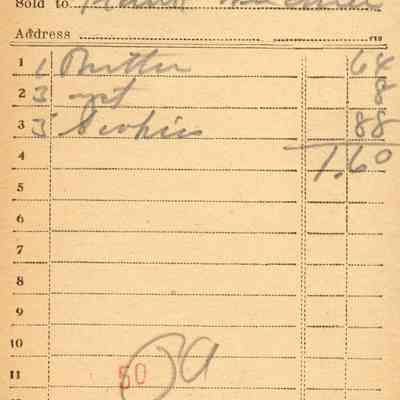 Sold to
Address
1 1 Butter 64
2 3 8
3 3 88
4 1.60
5
6
7
8
9
10
11 50